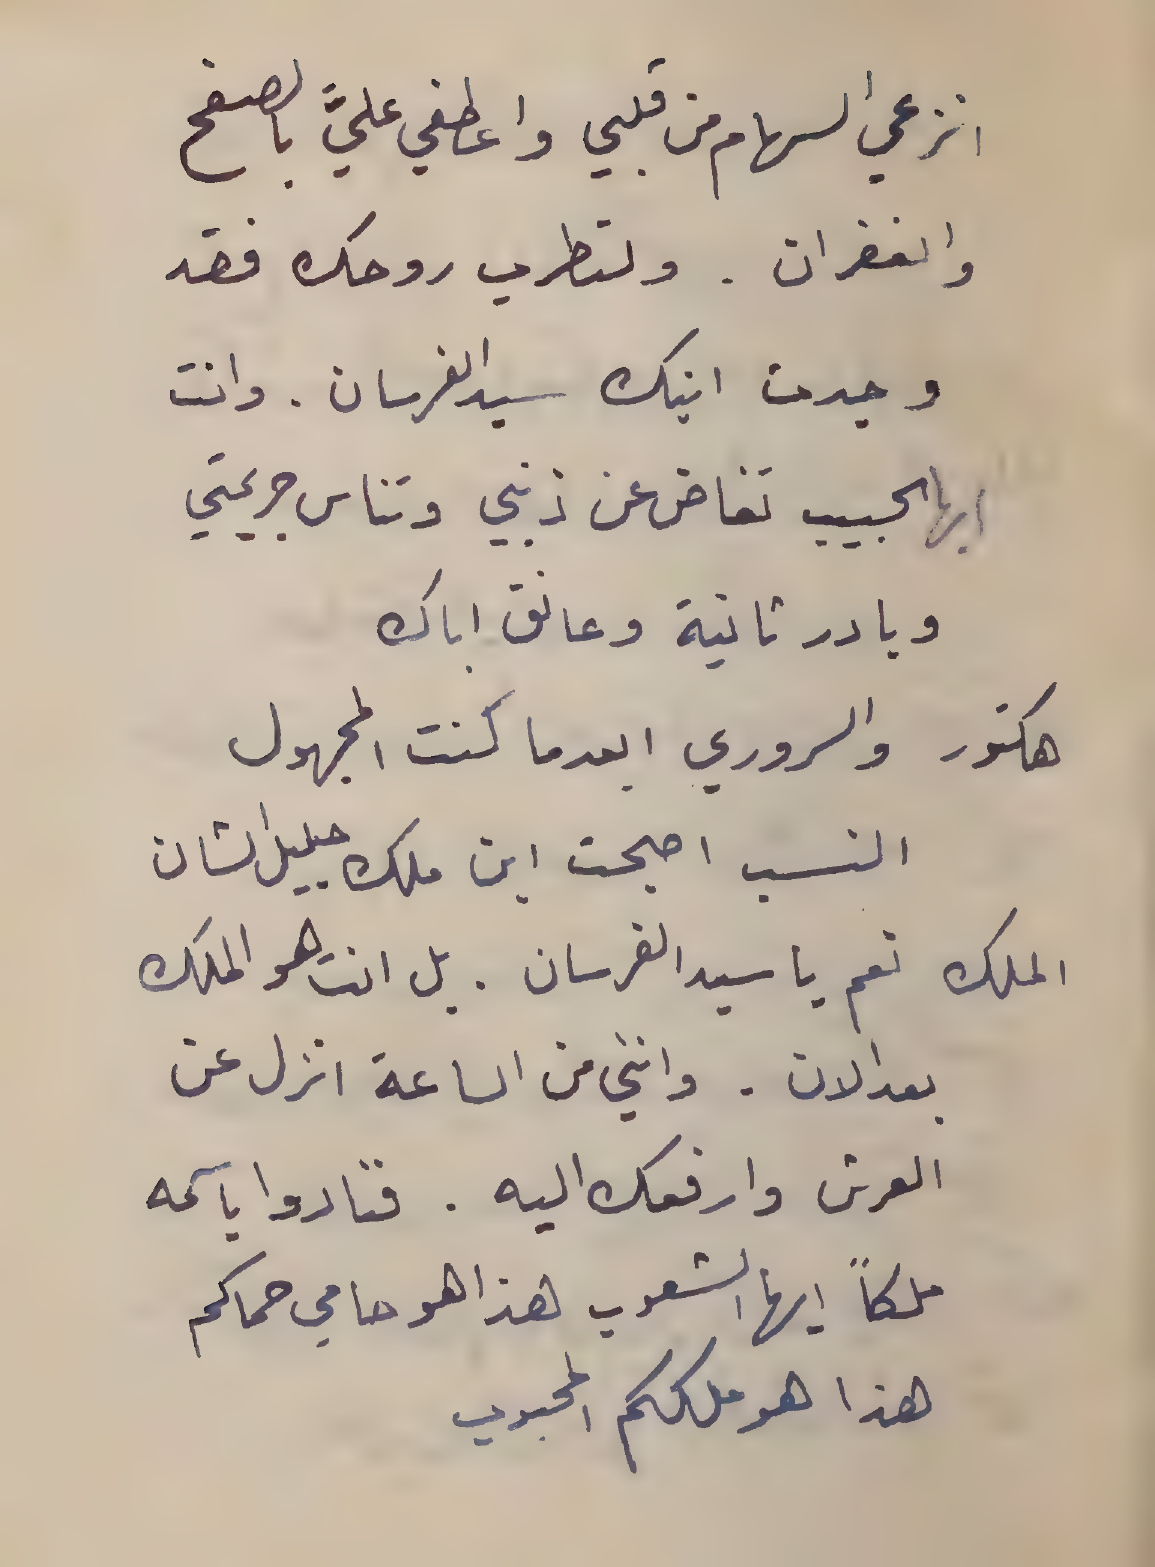 انزعي السهام من قلبي واعطفي عليَّ بالصفح
والغفران . ولتطرب روحك فقد
وجدت ابنك سيد الفرسان . وانت
ايها الحبيب تغاض عن ذنبي وتناس جريمتي
وبادر ثانية وعانق اباك
هكتور واسروري ابعدما كنت المجهول
النسب اصبحت ابن ملك جليل الشان
الملك نعم يا سيد الفرسان . بل انت هو الملك
بعد الان . وانني من الساعة انزل عن
العرش وارفعك اليه . فنادوا باسمه
ملكاً ايها الشعوب هذا هو حامي حماكم
هذا هو ملككم المحبوب